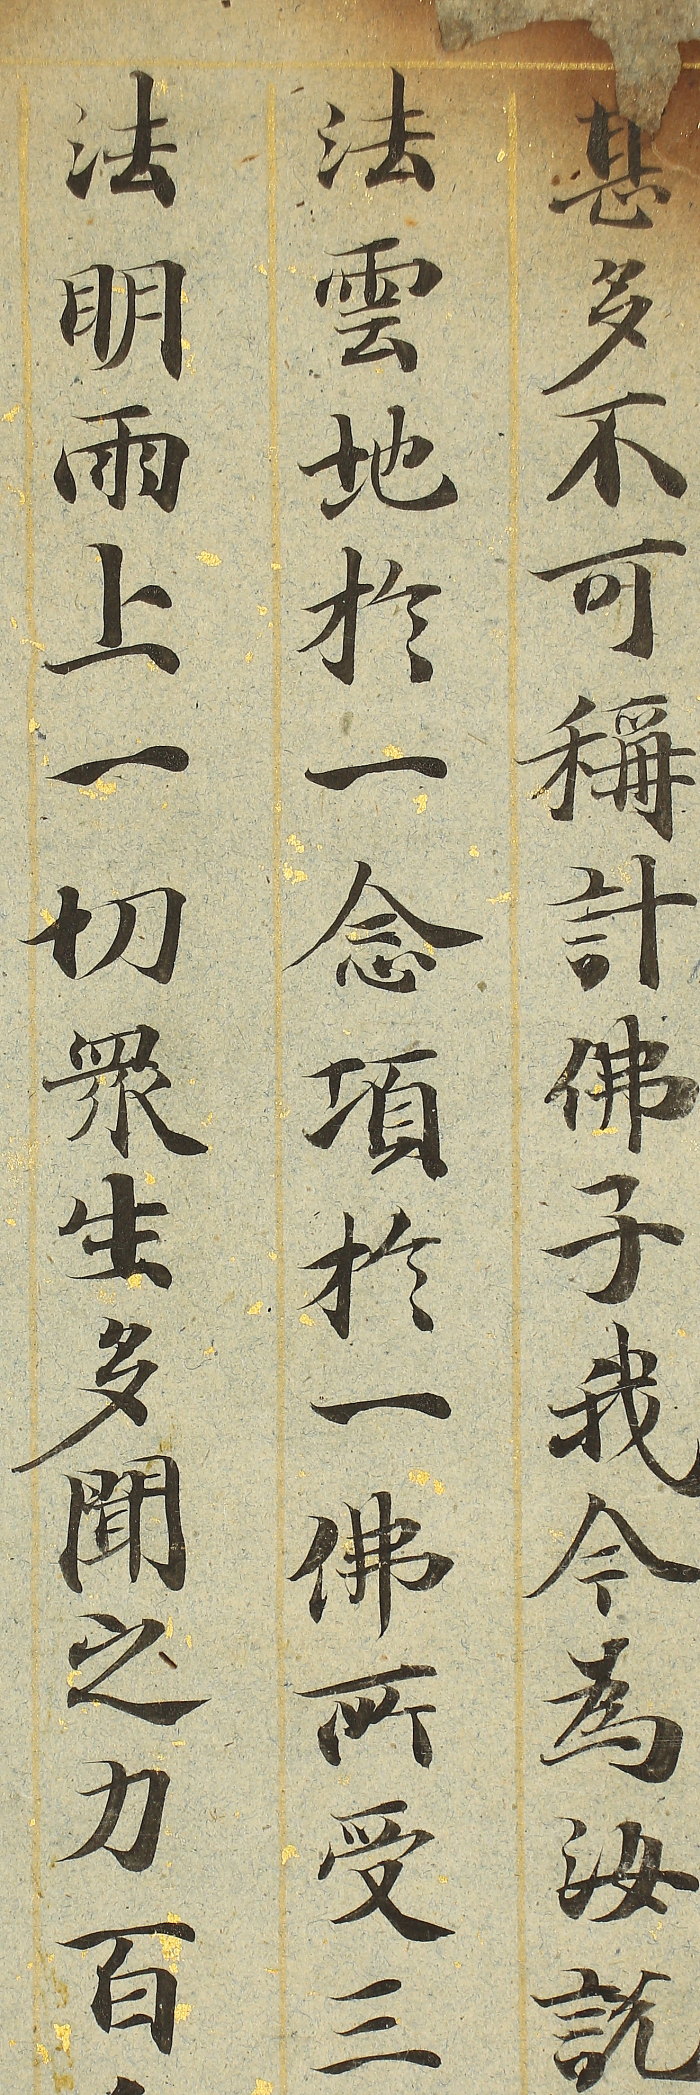 甚多不可稱計佛子我今為汝説
法雲地於一念項於一佛所受三
法明雨上一切眾生多聞之力百